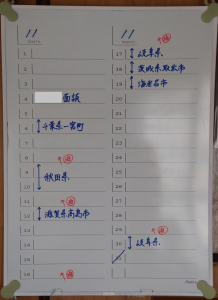 11
11
1
2
3
4 面談
5
6 千葉県一宮町
7
8
9
10 秋田県
11
12 滋賀県高島市
13
14
15
16
17 岐阜県
18 茨城県取手市
19 海老名市
20
21
22
23
24
25
26
27
28
29
30 岐阜県